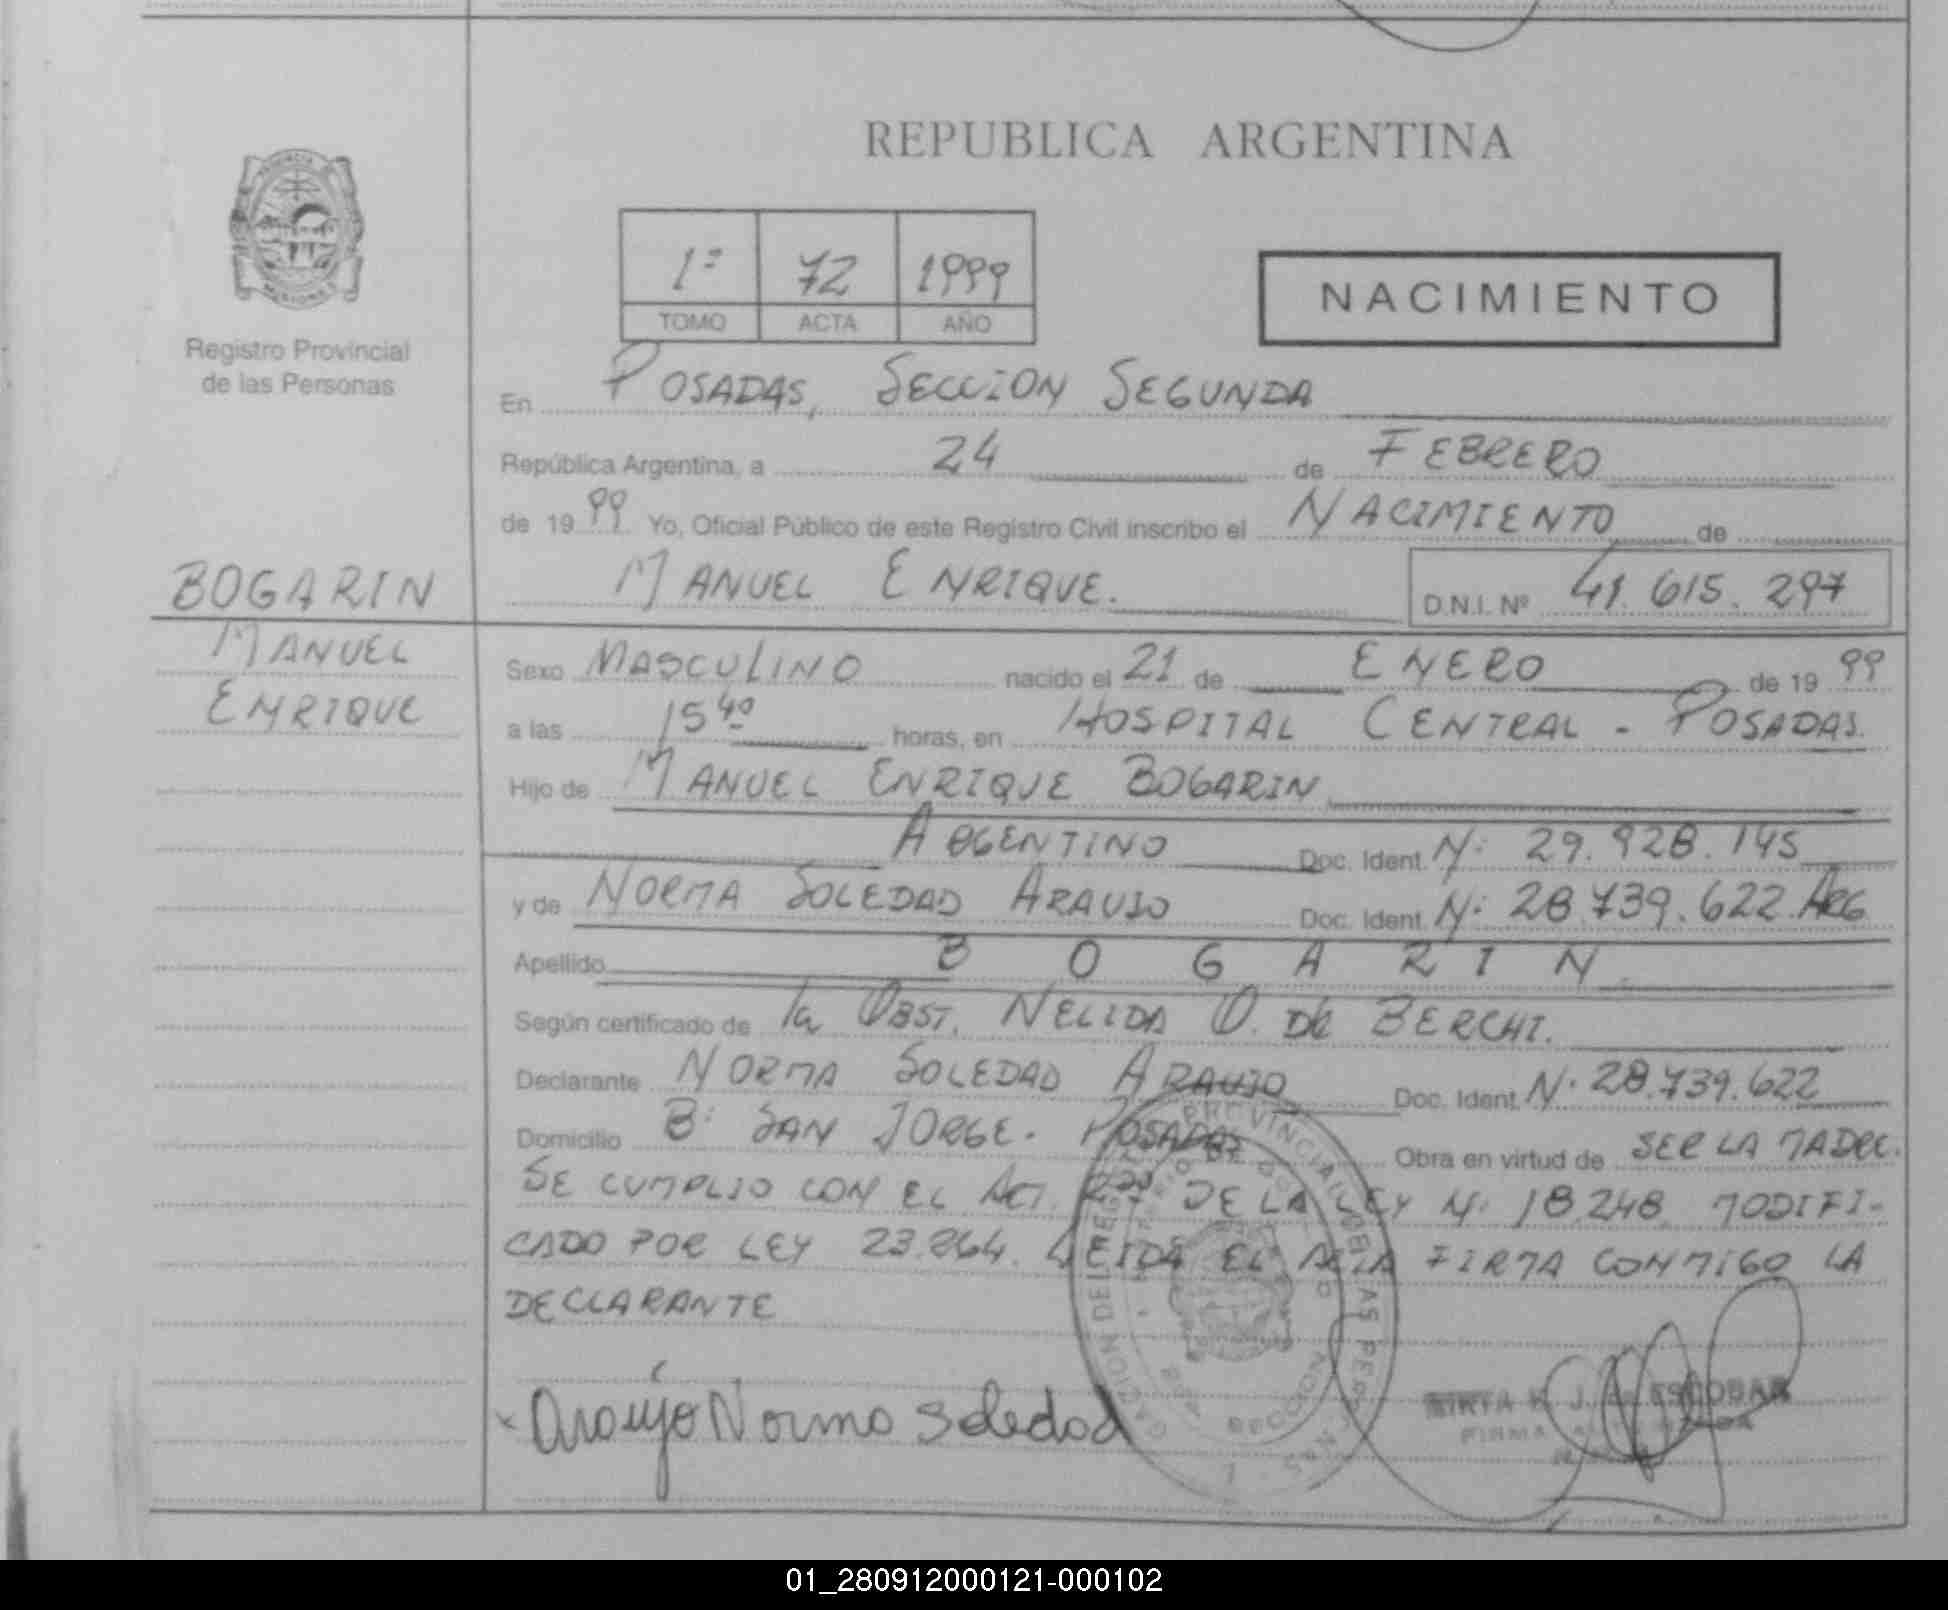 REPUBLICA ARGENTINA
1º 72 1999
TOMO ACTA AÑO
NACIMIENTO
Registro Provincial
de las Personas
En POSADAS, SECCION SEGUNDA
República Argentina, a 24 de FEBRERO
de 1999 Yo, Oficial Público de este Registro Civil inscribo el NACIMIENTO de
MANUEL ENRIQUE. D.N.I. Nº 41.615.297
BOGARIN
MANUEL
ENRIQUE
Sexo MASCULINO nacido el 21 de ENERO de 1999
a las 15 40 horas, en HOSPITAL CENTRAL - POSADAS.
Hijo de MANUEL ENRIQUE BOGARIN
ARGENTINO Doc. Ident. Nº 29.928.145
y de NORMA SOLEDAD ARAUJO Doc. Ident. Nº 28.739.622. ARG
Apellido B O G A R I N
Según certificado de la OBST. NELIDA O. De BERCHI.
Declarante NORMA SOLEDAD ARAUJO Doc. Ident. Nº 28.739.622
Domicilio Bº SAN JORGE. POSADAS Obra en virtud de SER LA MADRE.
SE CUMPLIO CON EL ART. DE LA LEY Nº 18.248 MODIFI-
CADO POR LEY 23.264. LEIDA EL ACTA FIRMA CONMIGO LA
DECLARANTE
x Araujo Norma Soledad
ESCOBAR
01_280912000121-000102